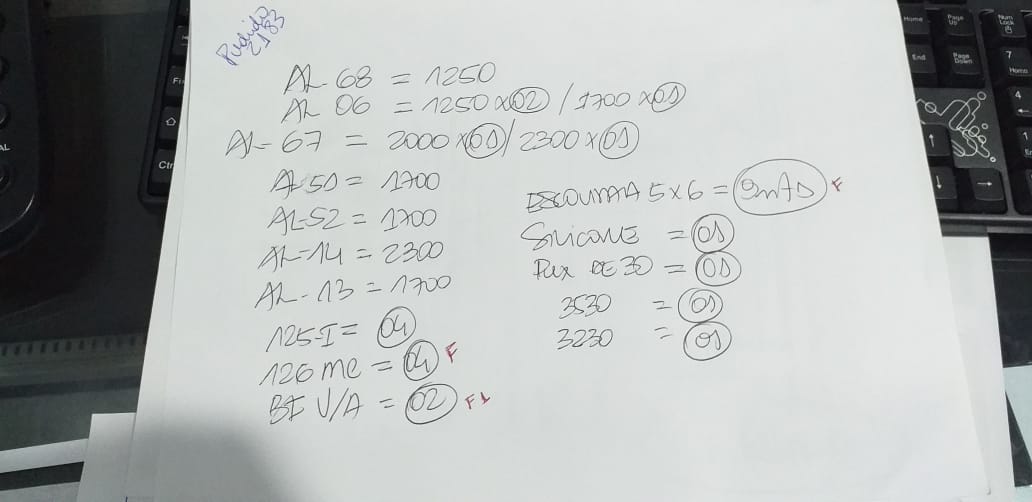 Pedido
2183
AL-68 = 1250
AL 06 = 1250 x 02 / 1700 x 01
AL-67 = 2000 x 01 / 2300 x 01
AL 51 = 1700
AL-52 = 1700
AL-14 = 2300
AL-13 = 1700
125-I = 04
126 MC = 04 F
BF V/A = 02 F1
5X6 = F
SILICONE = 01
DE 30 = 01
3530 = 01
3230 = 01
Home
Page Up
Num Lock
End
Page Down
7
Home
4
1
Ctr